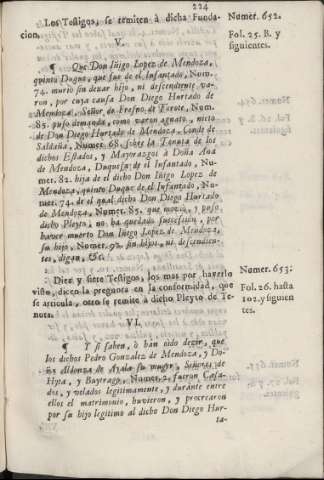 224
Los Testigos, se remiten à dicha Funda-
cion.
Numer. 652.
Fol. 25. B. y
siguientes.
V.
¶ Que Don Iñigo Lopez de Mendoza,
quinto Duque, que fue de el Infantado, Num.
74. murió sin dexar hijo, ni descendiente va-
ron, por cuya causa Don Diego Hurtado de
Mendoza, Señor de Fresno de Torote, Num.
85. puso demanda, como varon agnato, nieto
de Don Diego Hurtado de Mendoza, Conde de
Saldaña, Numer. 68. sobre la Tenuta de los
dichos Estados, y Mayorazgos à Doña Ana
de Mendoza, Duquesa de el Infantado, Nu-
mer. 82. hija de el dicho Don Iñigo Lopez de
Mendoza, quinto Duque de el Infantado, Nu-
mer. 74. de el qual dicho Don Diego Hurtado
de Mendoza, Numer. 85. que movió, y puso
dicho Pleyto, no ha quedado succession, por
haver muerto Don Iñigo Lopez de Mendoza,
su hijo, Numer. 92. sin hijos, ni descendien-
tes, digan, &c.
Diez y siete Testigos, los mas por haverlo
visto, dicen la pregunta en la conformidad, que
se articula, otro se remite à dicho Pleyto de Te-
nuta.
Numer. 653.
Fol. 26. hasta
102. y siguien
tes.
VI.
¶ Y si saben, ò han oìdo decir, que
los dichos Pedro Gonzalez de Mendoza, y Do-
ña Aldonza de Ayala su muger, Señores de
Hyta, y Buytrago, Numer. 2. fueron Casa-
dos, y velados legitimamente, y durante entre
ellos el matrimonio, huvieron, y procrearon
por su hijo legitimo al dicho Don Diego Hur-
ta-